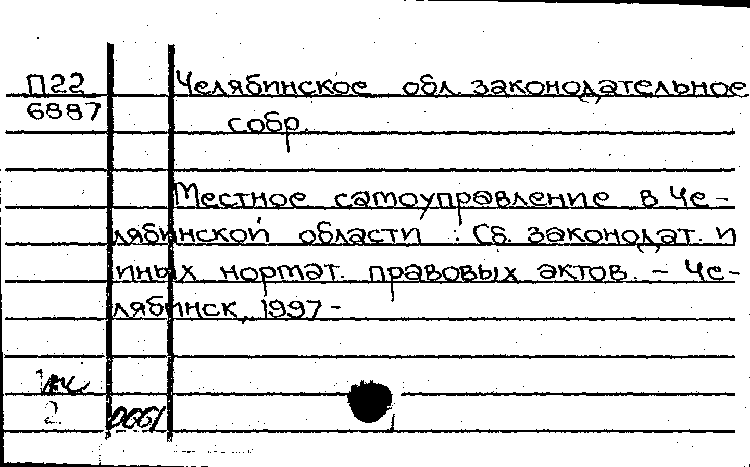 П22 Челябинское обл. законодательное
6887 собр.
Местное самоуправление в Че-
лябинской области : Сб. законодат. и
иных нормат. правовых актов. - Че-
лябинск, 1997 -
2